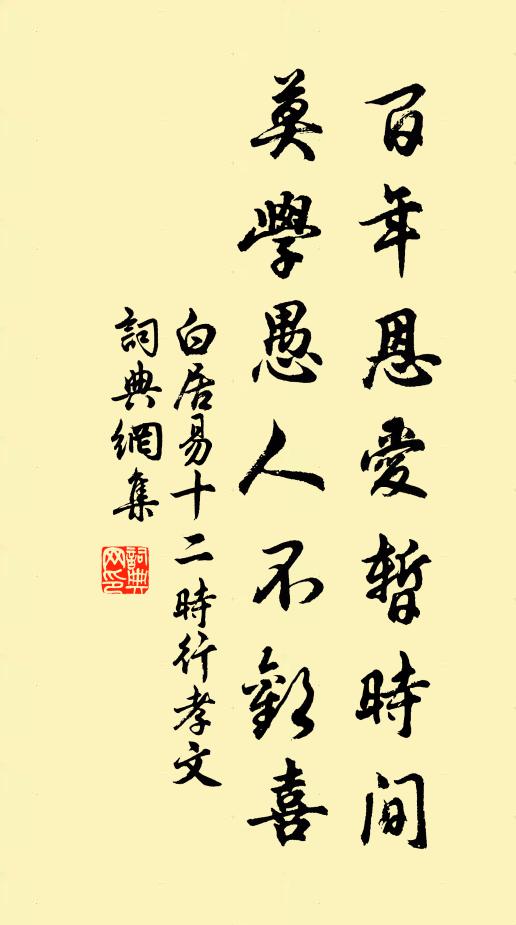 百年恩愛暫時間
莫學愚人不歡喜
白居易十二時行孝文
詞典網集
詞典網印